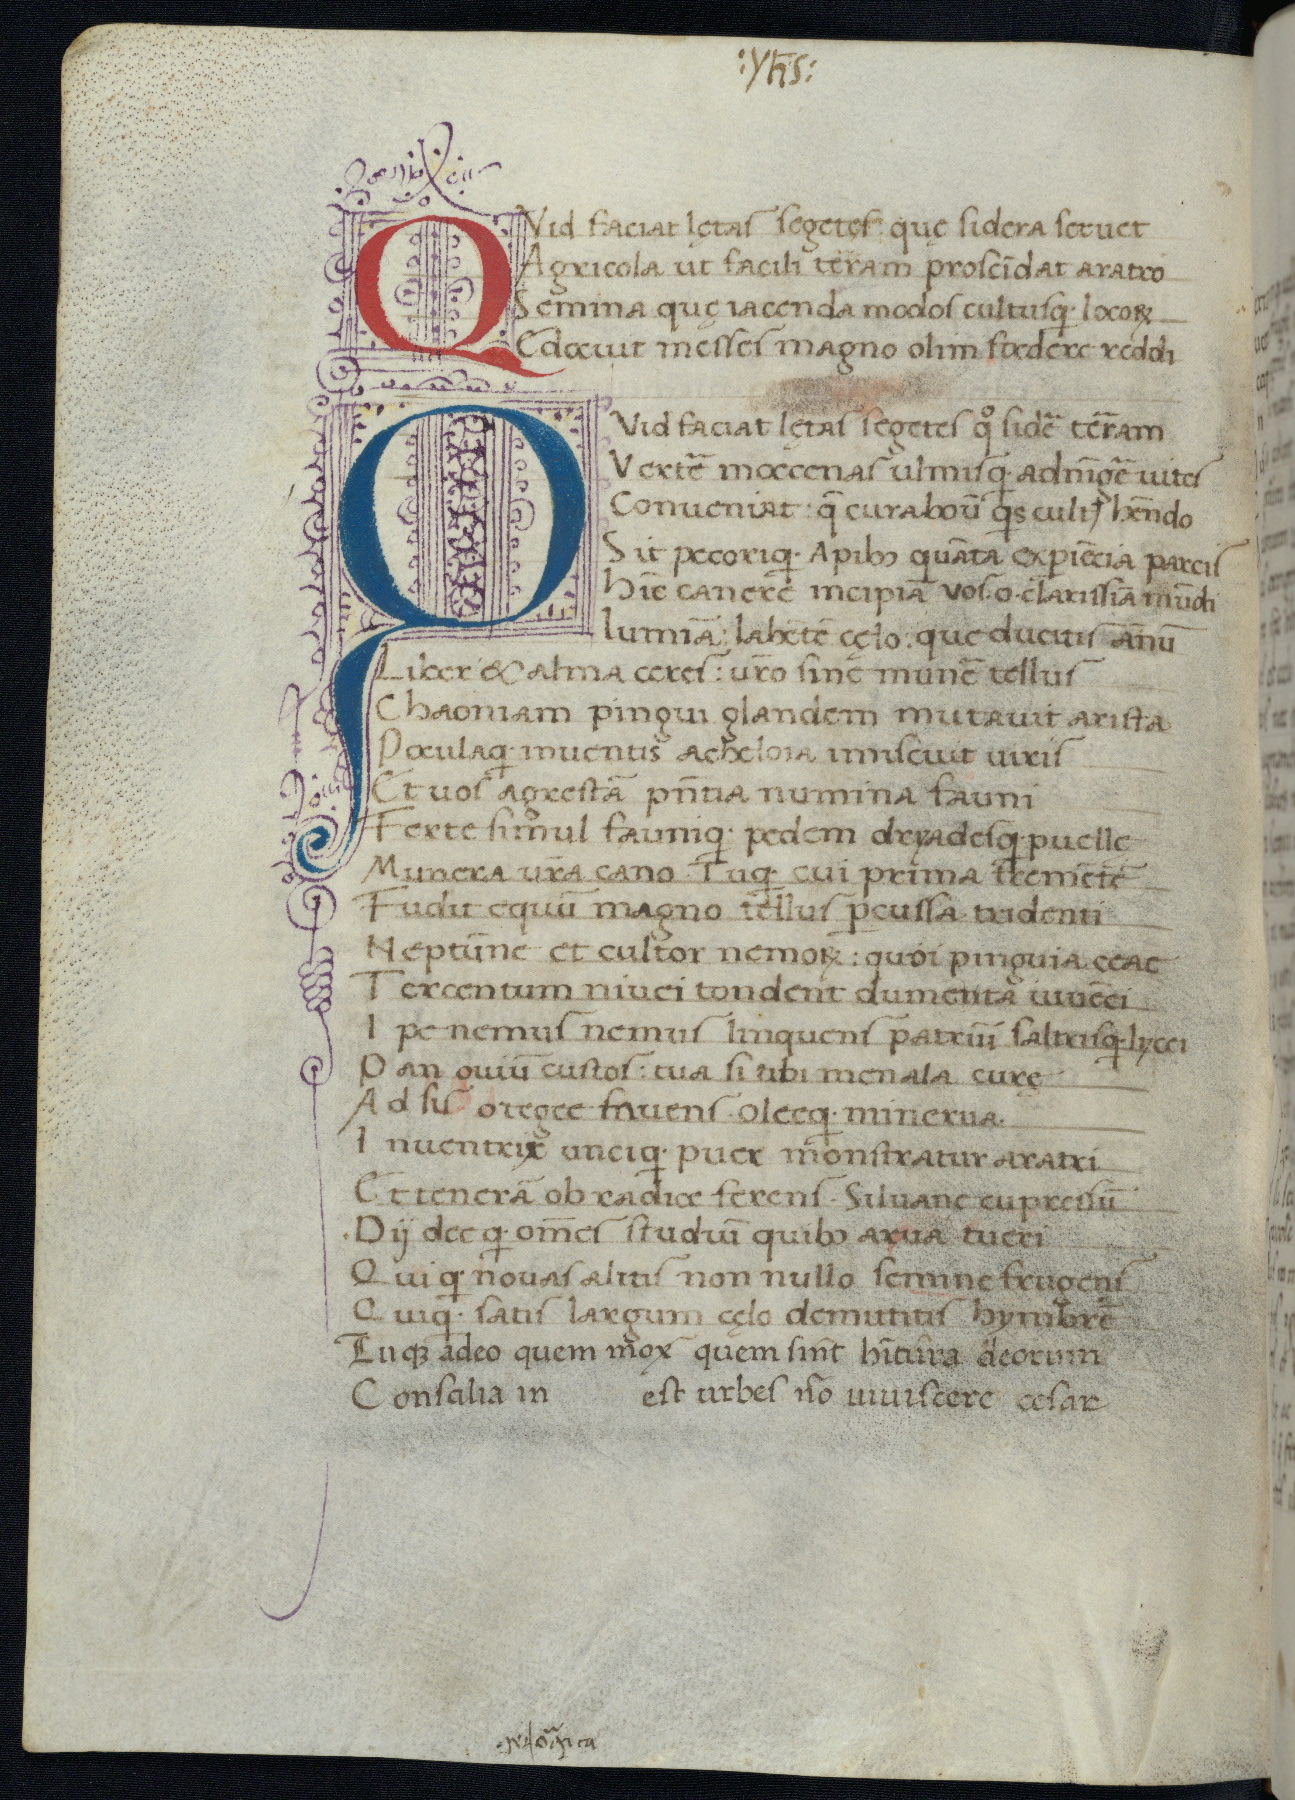 :yħs:
QVid faciat lętas segetes quę sidera seruet
Agricola ut facili teram proscīdat aratro
Semina quę iacenda modos cultusq; locoꝝ
Edocuit messes magno olim foedere reddi
QVid faciat lętas segetes qͦ sidē tēram
Vertē mœcenas ulmisq; adiūgē uites
Conueniat: q̄ cura boū q̄s cult9 hēndo
Sit pecoriq; Apibꝫ quāta expiēcia parcis
hīc canere incipiā vos. o. clarissīa mūdi
lumīa: labētē cęlo: que ducitis ānū
Liber & alma ceres: ur̄o sine munē tellus
Chaoniam pingui glandem mutauit arista
Poculaq; inuentis acheloia imiscuit uvis
Et uos agrestā pn̄tia numina fauni
Ferte simul fauniq; pedem dryadesq; puelle
Munera ur̄a cano. Tuq; cui prima fremētē
Fudit equū magno tellus pcussa tridenti
Neptūne et cultor nemoꝝ: quoi pinguia ceae
Tercentum nivei tondent dumenta iuuēci
Ipe nemus nemus linquens patriū saltusq; lycei
Pan ouiū custos: tua si tibi menala curę
Adsis o tegee fauens. oleeq; minerua.
Inuentrix unciq; puer monstratur aratri
Et tenerā ob radice ferens. Siluane cupressū
Dij deeq; om̄es studiū quibꝫ arua tueri
Quiq; novas alitis non nullo semine frugens
Quiq; satis largum cęlo demittitis hymbrē
Tuqꝫ adeo quem mox quem sint hītura deorum
Consilia in est urbes nō uiuiscere cesar